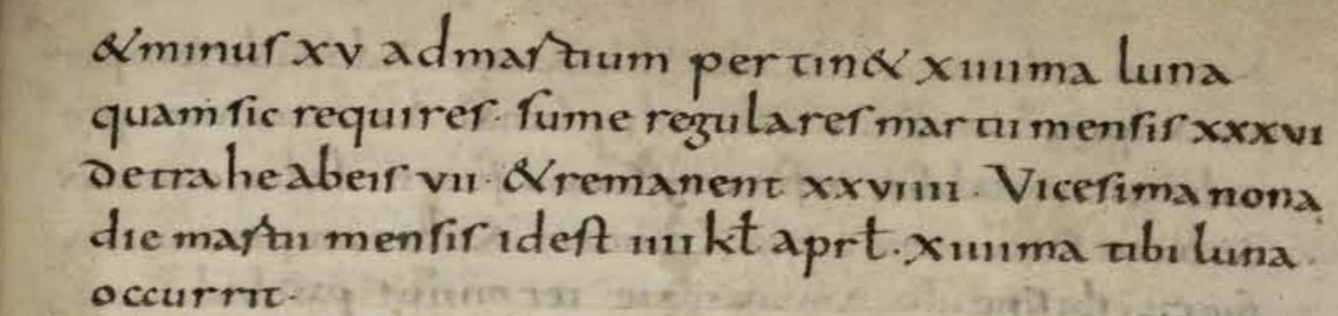 &minus xv admartium pertin& xiiiima luna
quam sic requires· sume regulares martii mensis xxxvi
detrahe abeis vii· &remanent xxviiii· Vicesima nona
die martii mensis idest iiii kł aprł· xiiiima tibi luna
occurrit·